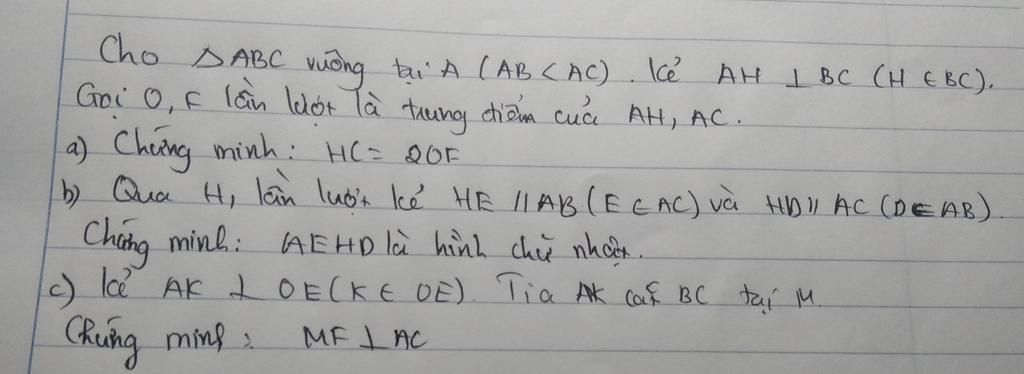 Cho △ABC vuông tại A (AB < AC). Kẻ AH ⊥ BC (H ∈ BC).
Gọi O, F lần lượt là trung điểm của AH, AC.
a) Chứng minh: HC = 2OF
b) Qua H, lần lượt kẻ HE // AB (E ∈ AC) và HD // AC (D ∈ AB).
Chứng minh: AEHD là hình chữ nhật.
c) Kẻ AK ⊥ OE (K ∈ OE). Tia AK cắt BC tại M.
Chứng minh: MF ⊥ AC